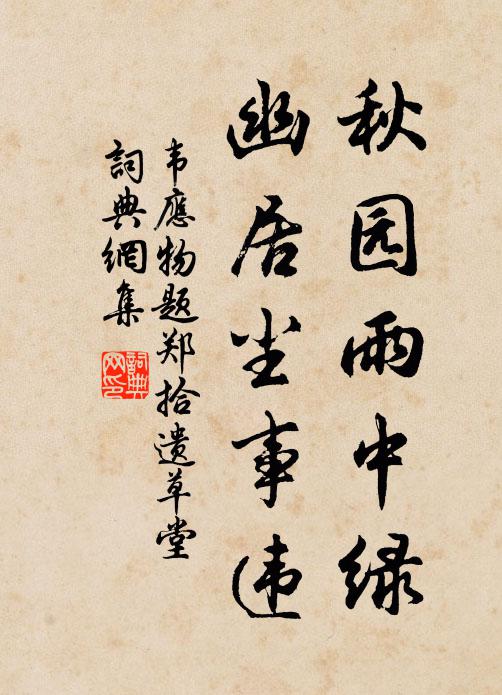 秋园雨中绿
幽居尘事违
韦應物题郑拾遗草堂
詞典網集
詞典
网印